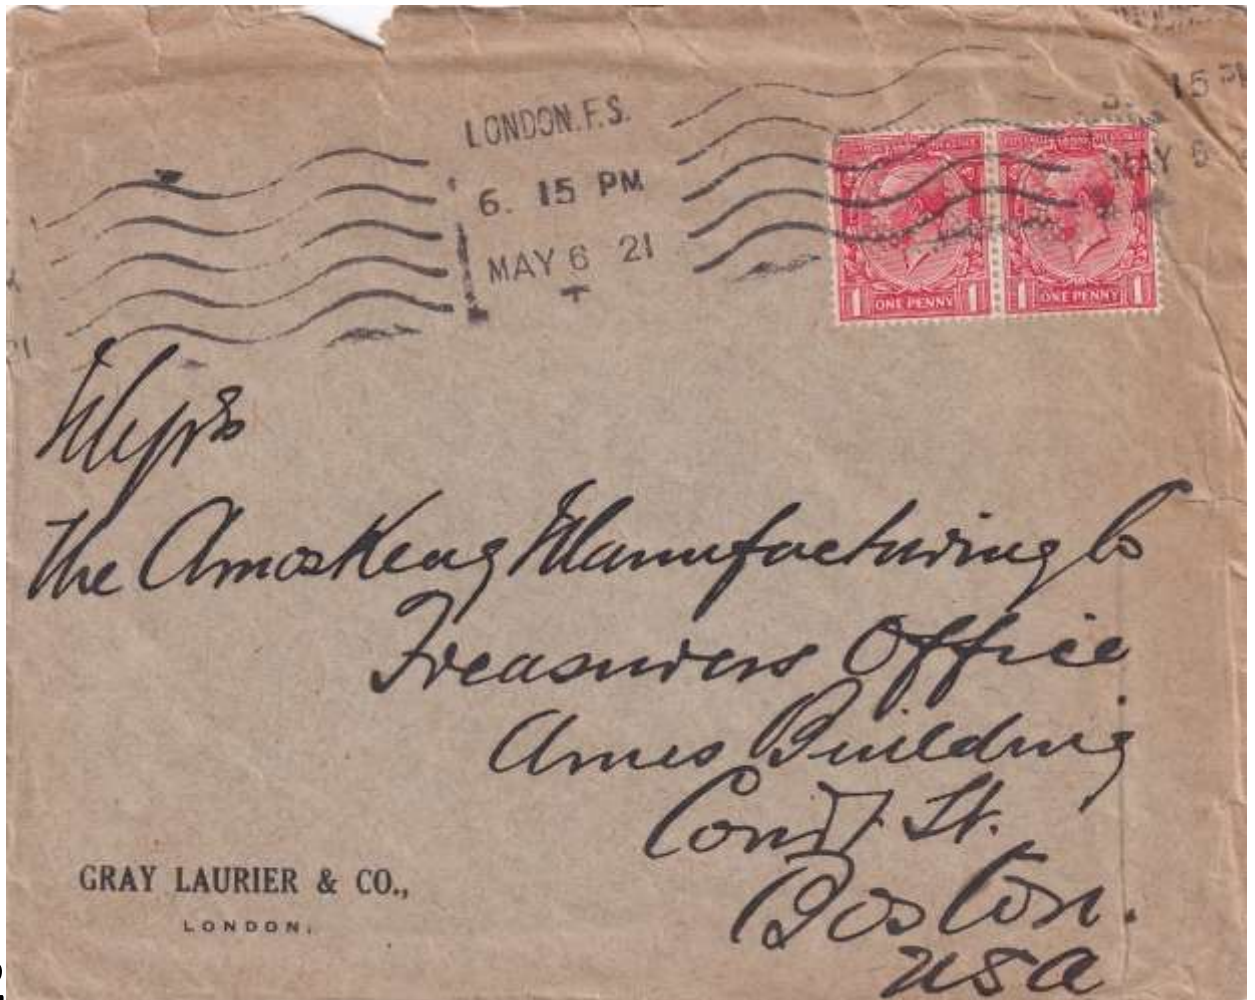 LONDON.F.S.
6. 15 PM
MAY 6 21
15 PM
MAY 6
ONE PENNY
1 1
ONE PENNY
1 1
Messrs
The Amoskeag Manufacturing Co
Treasurers Office
Ames Building
Court St.
Boston.
USA
GRAY LAURIER & CO.,
LONDON.